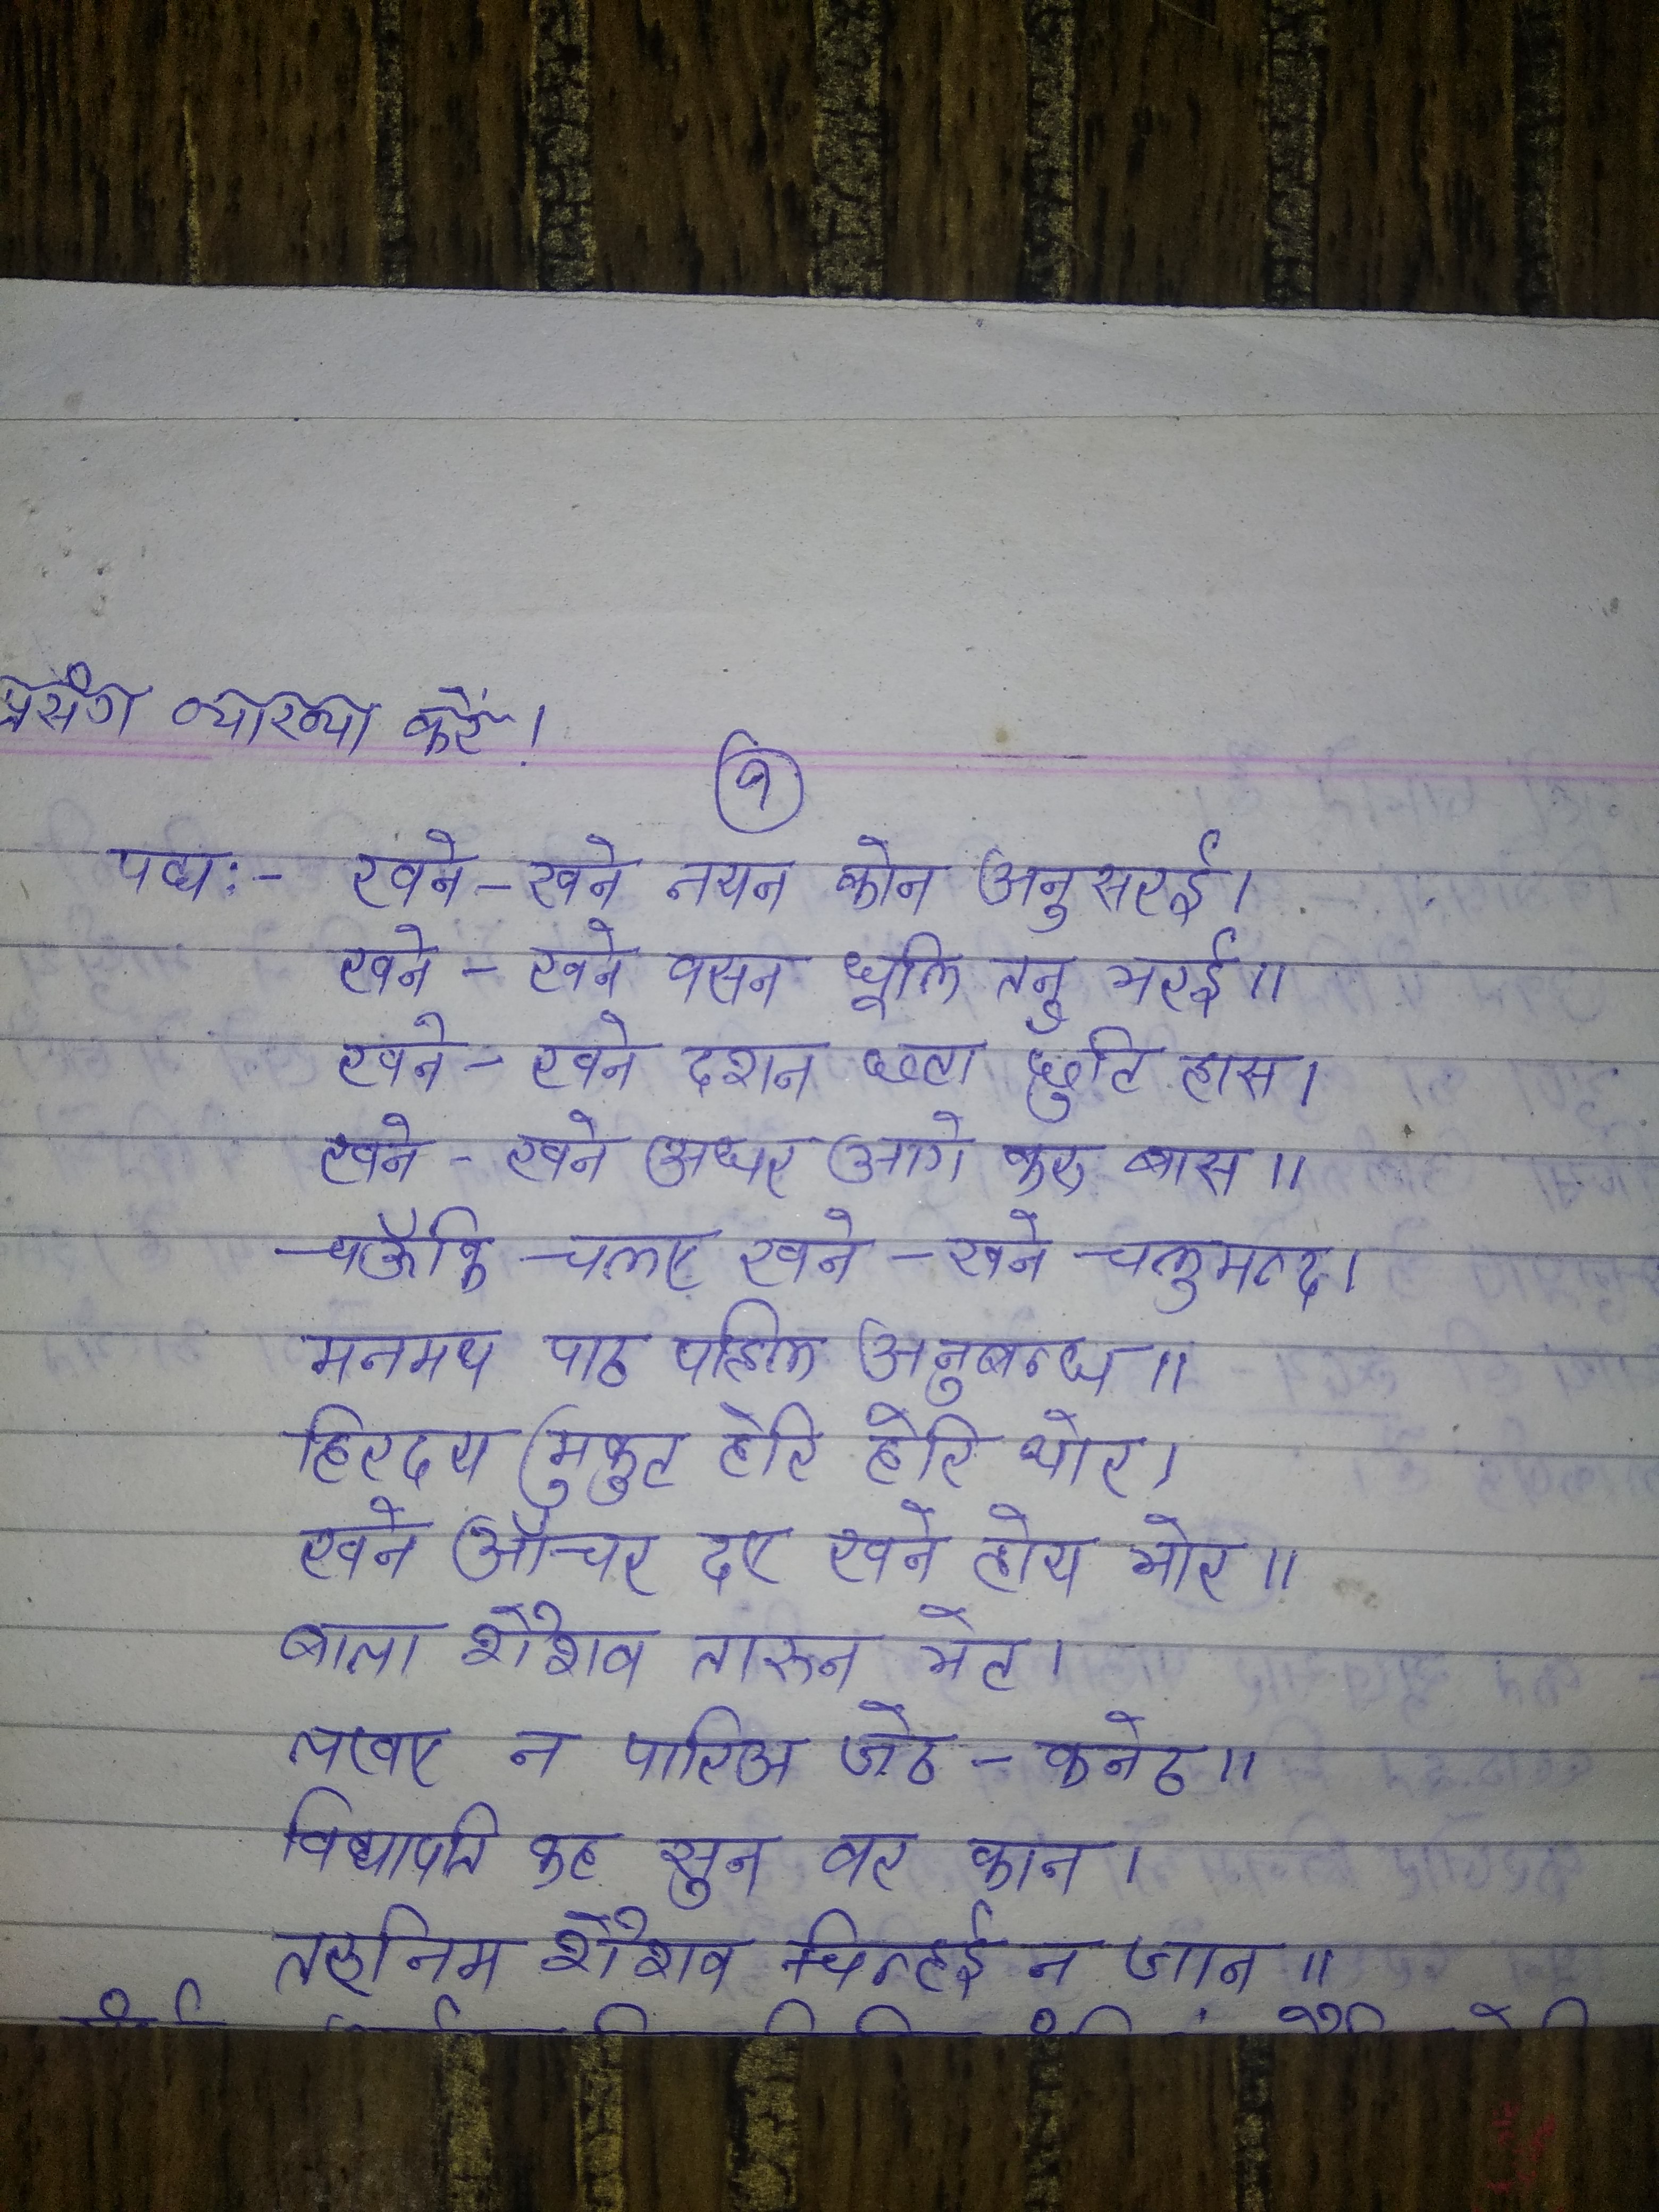 प्रसंग व्याख्या करें।
१
पद्य:- खने-खने नयन कोन अनुसरई।
खने - खने वसन धूलि तनु भरई॥
खने - खने दशन छटा छुटि हास।
खने - खने अधर आगे करु बास॥
चऊँकि चलए खने - खने चलु मन्द।
मनमथ पाठ पहिल अनुबन्ध॥
हिरदय मुकुट हेरि हेरि थोर।
खने आँचर दए खने होय भोर॥
बाला शैशव तारुन भेट।
लखए न पारिअ जेठ - कनेठ॥
विद्यापति कह सुन वर कान।
तरुनिम शैशव चिन्हई न जान॥